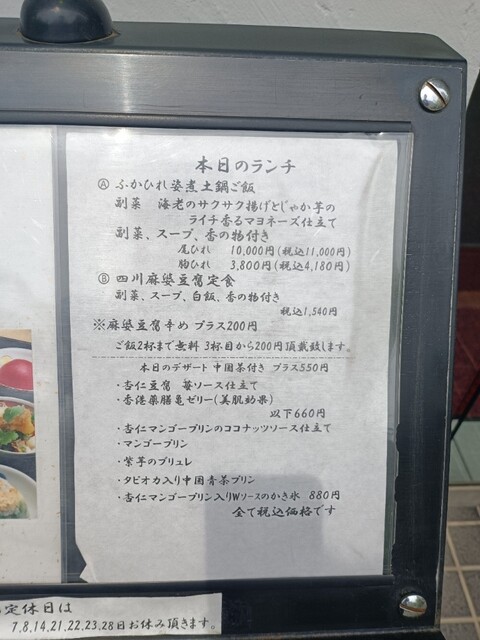 本日のランチ
Ⓐ ふかひれ姿煮土鍋ご飯
副菜 海老のサクサク揚げとじゃか芋の
ライチ香るマヨネーズ仕立て
副菜、スープ、香の物付き
尾ひれ 10,000円(税込11,000円)
胸ひれ 3,800円(税込4,180円)
Ⓑ 四川麻婆豆腐定食
副菜、スープ、白飯、香の物付き
税込1,540円
※麻婆豆腐辛め プラス200円
ご飯2杯まで無料 3杯目から200円頂戴致します。
本日のデザート 中国茶付き プラス550円
・杏仁豆腐 苺ソース仕立て
・香港薬膳亀ゼリー(美肌効果)
以下660円
・杏仁マンゴープリンのココナッツソース仕立て
・マンゴープリン
・紫芋のブリュレ
・タピオカ入り中国青茶プリン
・杏仁マンゴープリン入りWソースのかき氷 880円
全て税込価格です
定休日は
7,8,14,21,22,23,28日お休み頂きます。